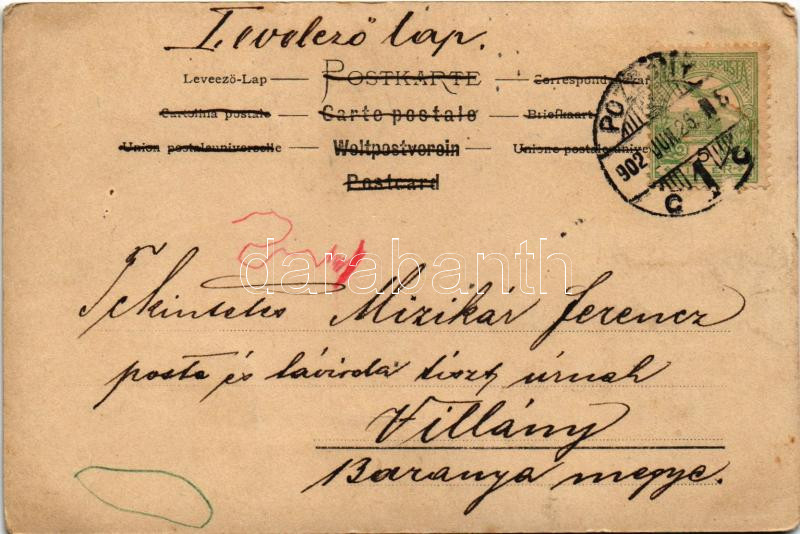 Levelező lap.
Leveezö-Lap POSTKARTE Correspond
Cartolina postale Carte postale Briefkaart
Union postale universelle Weltpostverein Union postale unive
Postcard
POZSONY
902 JUN. 25. N 8
C 1 C
darabanth
Tekintetes Mizikár Ferencz
posta és távirda tiszt úrnak
Villány
Baranya megye.